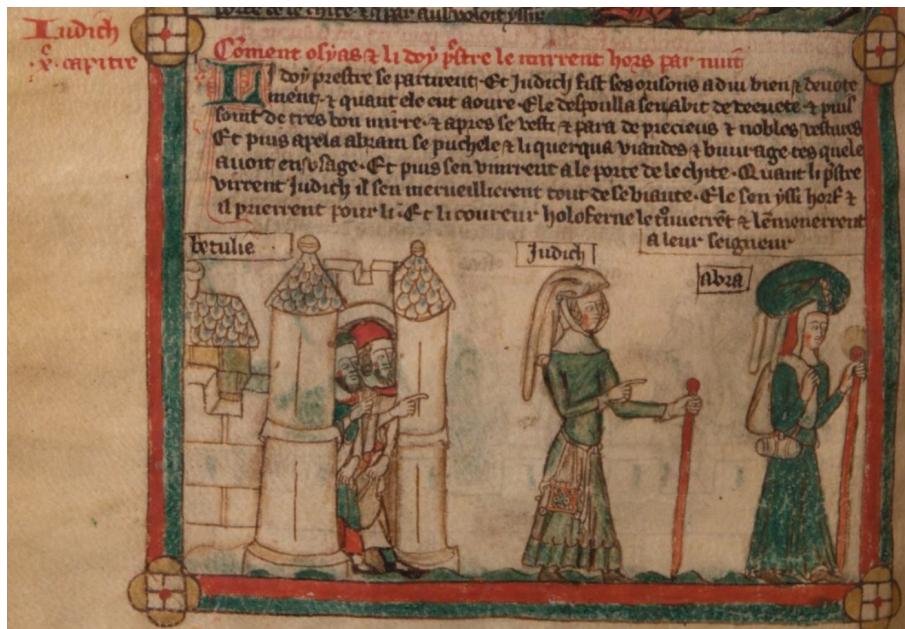 porte de le chite · & par au[...] voloit yssir
Iudich
·x͛· capitre
Coment osyas & li doy p̃stre le mirrent hors par nuit
LI doy prestre se partirent · Et Judich fist ses orisons a diu bien & devote
ment · & quant ele eut aoure · Ele despoulla sen abit de veeuete · & puis
soint de tres bon mirre · & apres se vesti & para de precieus & nobles vestures
Et puis apela abram se puchele & li querqua viandes & buurage tes quele
avoit en usage · Et puis sen vinrrent a le porte de le chite · Quant li p̃stre
virrent Judich il sen merveillierent tout de se biaute · Ele sen yssi hors &
il prierrent pour li · Et li coureur holoferne le trouverrēt & lēmenerrent
a leur seigneur
betulie
Judich
Abra